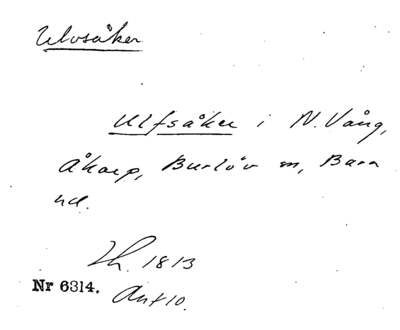 Ulvsåker
Ulfsåker i N. Vång,
Åkarp, Burlöv sn, Bara
hd.
Lh. 1813
Nr 6314.
Ant 10.